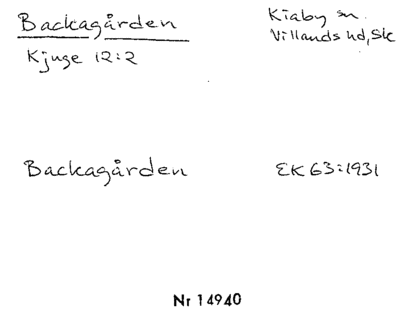 Backagården
Kjuge 12:2
Kiaby sn.
Villands hd, Sk
Backagården
EK 63:1931
Nr 14940